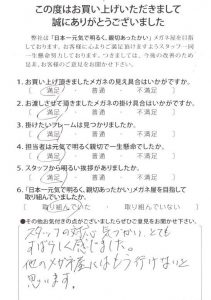 この度はお買い上げいただきまして
誠にありがとうございました
弊社は「日本一元気で明るく、親切あったかい」メガネ屋を目指
しております。お客様に心よりご満足頂けますようスタッフ一同
一生懸命努力しております。つきましては、今後の改善のため
是非、お客様のご意見をお聞かせ下さい。
1. お買い上げ頂きましたメガネの見え具合はいかがですか。
満足 ・ 普通 ・ 不満足
2. お渡しさせて頂きましたメガネの掛け具合はいかがですか。
満足 ・ 普通 ・ 不満足
3. 掛けたいフレームは見つかりましたか。
満足 ・ 普通 ・ 不満足
4. 担当者は元気で明るく親切で一生懸命でしたか。
満足 ・ 普通 ・ 不満足
5. スタッフから明るい挨拶がありましたか。
満足 ・ 普通 ・ 不満足
6. 「日本一元気で明るく、親切あったかい」メガネ屋を目指して
取り組んでいましたか。
取り組んでいた ・ 取り組んでいない
●その他お気付きの点がございましたらぜひご意見をお聞かせ下さい。
スタッフの対応、気づかい、とても
すばらしく感じました。
他のメガネ屋にはもう行けないと
思います。